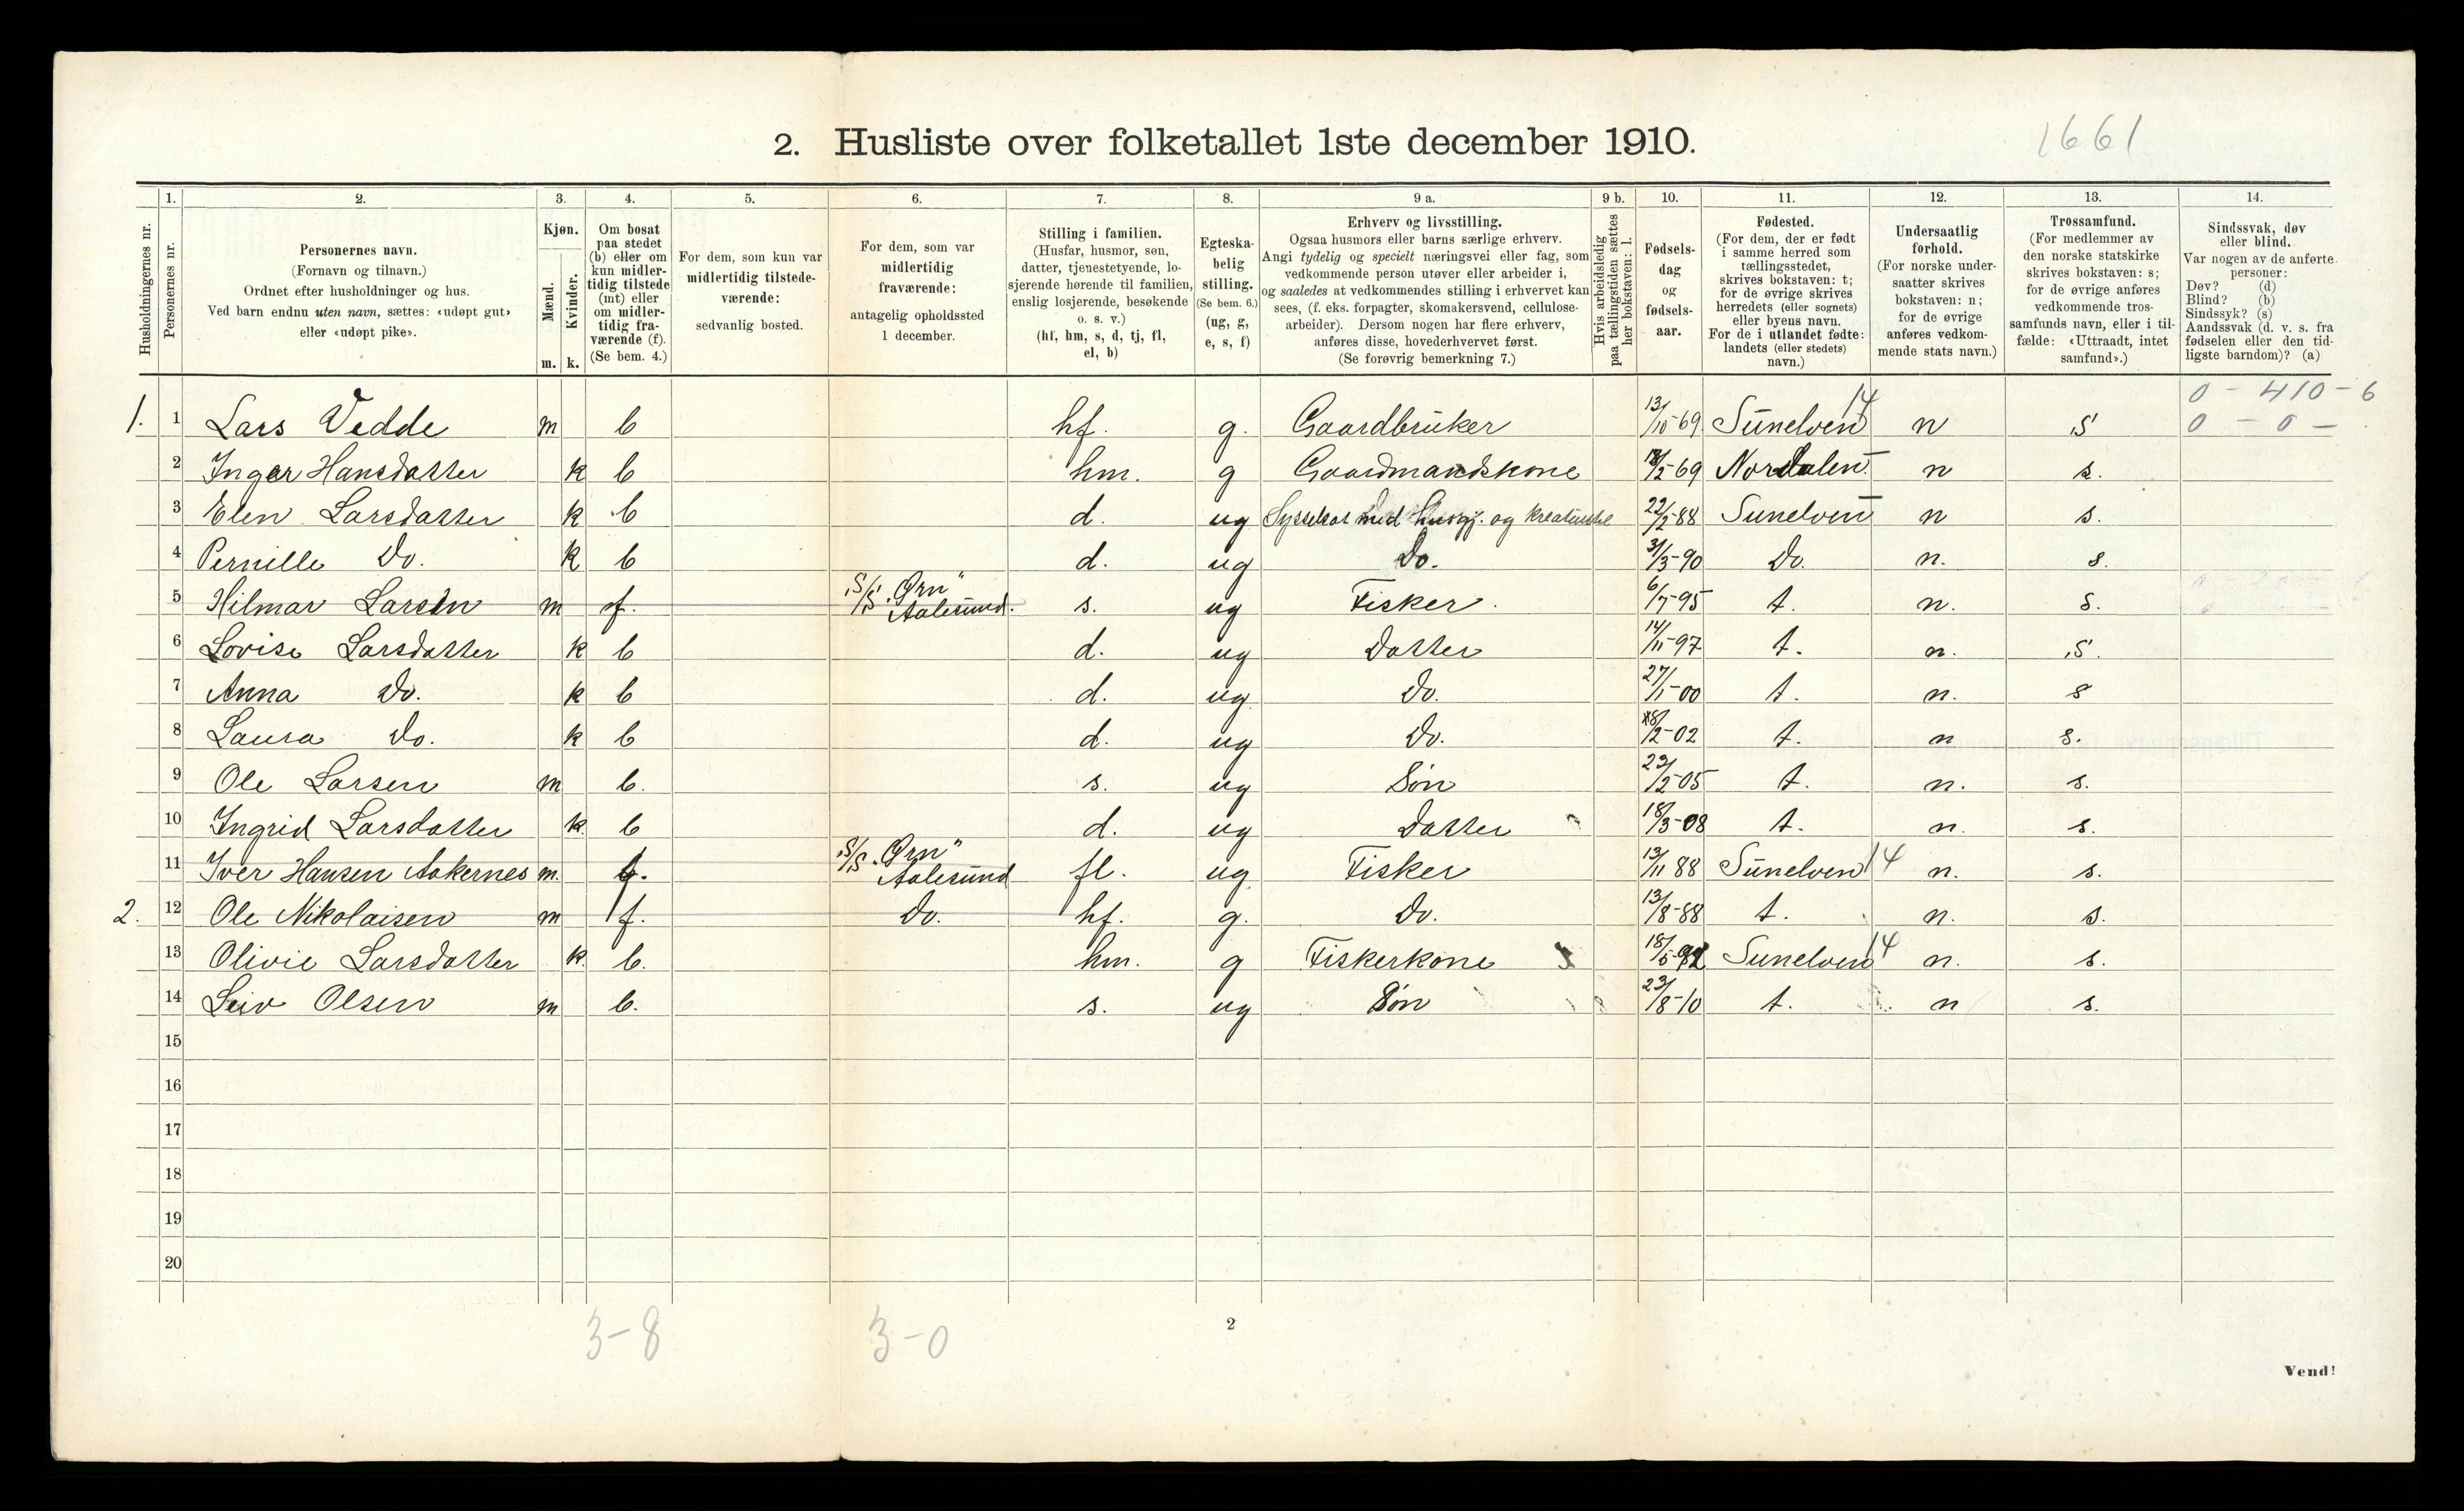 2. Husliste over folketallet 1ste december 1910.
1661
1. 2. 3. 4. 5. 6. 7. 8. 9 a. 9 b. 10. 11. 12. 13. 14.
Husholdningernes nr.
Personernes nr.
Personernes navn.
(Fornavn og tilnavn.)
Ordnet efter husholdninger og hus.
Ved barn endnu uten navn, sættes: «udøpt gut»
eller «udøpt pike».
Kjøn.
Mænd.
Kvinder.
m. k.
Om bosat
paa stedet
(b) eller om
kun midler-
tidig tilstede
(mt) eller
om midler-
tidig fra-
værende (f).
(Se bem. 4.)
For dem, som kun var
midlertidig tilstede-
værende:
sedvanlig bosted.
For dem, som var
midlertidig
fraværende:
antagelig opholdssted
1 december.
Stilling i familien.
(Husfar, husmor, søn,
datter, tjenestetyende, lo-
sjerende hørende til familien,
enslig losjerende, besøkende
o. s. v.)
(hf, hm, s, d, tj, fl,
el, b)
Egteska-
belig
stilling.
(Se bem. 6.)
(ug, g,
e, s, f)
Erhverv og livsstilling.
Ogsaa husmors eller barns særlige erhverv.
Angi tydelig og specielt næringsvei eller fag, som
vedkommende person utøver eller arbeider i,
og saaledes at vedkommendes stilling i erhvervet kan
sees, (f. eks. forpagter, skomakersvend, cellulose-
arbeider). Dersom nogen har flere erhverv,
anføres disse, hovederhvervet først.
(Se forøvrig bemerkning 7.)
Hvis arbeidsledig
paa tællingstiden sættes
her bokstaven: l.
Fødsels-
dag
og
fødsels-
aar.
Fødested.
(For dem, der er født
i samme herred som
tællingsstedet,
skrives bokstaven: t;
for de øvrige skrives
herredets (eller sognets)
eller byens navn.
For de i utlandet fødte:
landets (eller stedets)
navn.)
Undersaatlig
forhold.
(For norske under-
saatter skrives
bokstaven: n;
for de øvrige
anføres vedkom-
mende stats navn.)
Trossamfund.
(For medlemmer av
den norske statskirke
skrives bokstaven: s;
for de øvrige anføres
vedkommende tros-
samfunds navn, eller i til-
fælde: «Uttraadt, intet
samfund».)
Sindssvak, døv
eller blind.
Var nogen av de anførte
personer:
Døv? (d)
Blind? (b)
Sindssyk? (s)
Aandssvak (d. v. s. fra
fødselen eller den tid-
ligste barndom)? (a)
0 - 410 - 6
1. 1 Lars Vedde m b hf. g. Gaardbruker 13/10-69 Sunelven 14 n s 0 - 0 -
2 Inger Hansdatter k b hm. g Gaardmandskone /2-69 Nordalen n s.
3 Elen Larsdatter k b d. ug Sysselsat med husgj. og kreaturstel 22/2-88 Sunelven n s.
4 Pernille Do. k b d. ug Do. 31/3-90 Do. n. s.
5 Hilmar Larsen m f. S/S. "Ørn" Aalesund. s. ug Fisker. 6/7-95 t. n. s.
6 Lovise Larsdatter k b d. ug Datter 14/11-97 t. n. s.
7 Anna Do. k b d. ug Do. 27/1-00 t. n. s
8 Laura Do. k b d. ug Do. /2-02 t. n s.
9 Ole Larsen m b. s. ug Søn 23/2-05 t. n. s.
10 Ingrid Larsdatter k. b d. ug Datter 18/3-08 t. n. s.
11 Iver Hansen Aakernes m. f. S/S. "Ørn" Aalesund fl. ug Fisker 13/11 88 Sunelven 14 n. s.
2. 12 Ole Nikolaisen m f. Do. hf. g. Do. 13/8-88 t. n. s.
13 Olivie Larsdatter k. b. hm. g Fiskerkone 18/5- Sunelven 14 n. s.
14 Leiv Olsen m b. s. ug Søn 23/8-10 t. n s.
15
16
17
18
19
20
3-8 3-0
2
Vend!